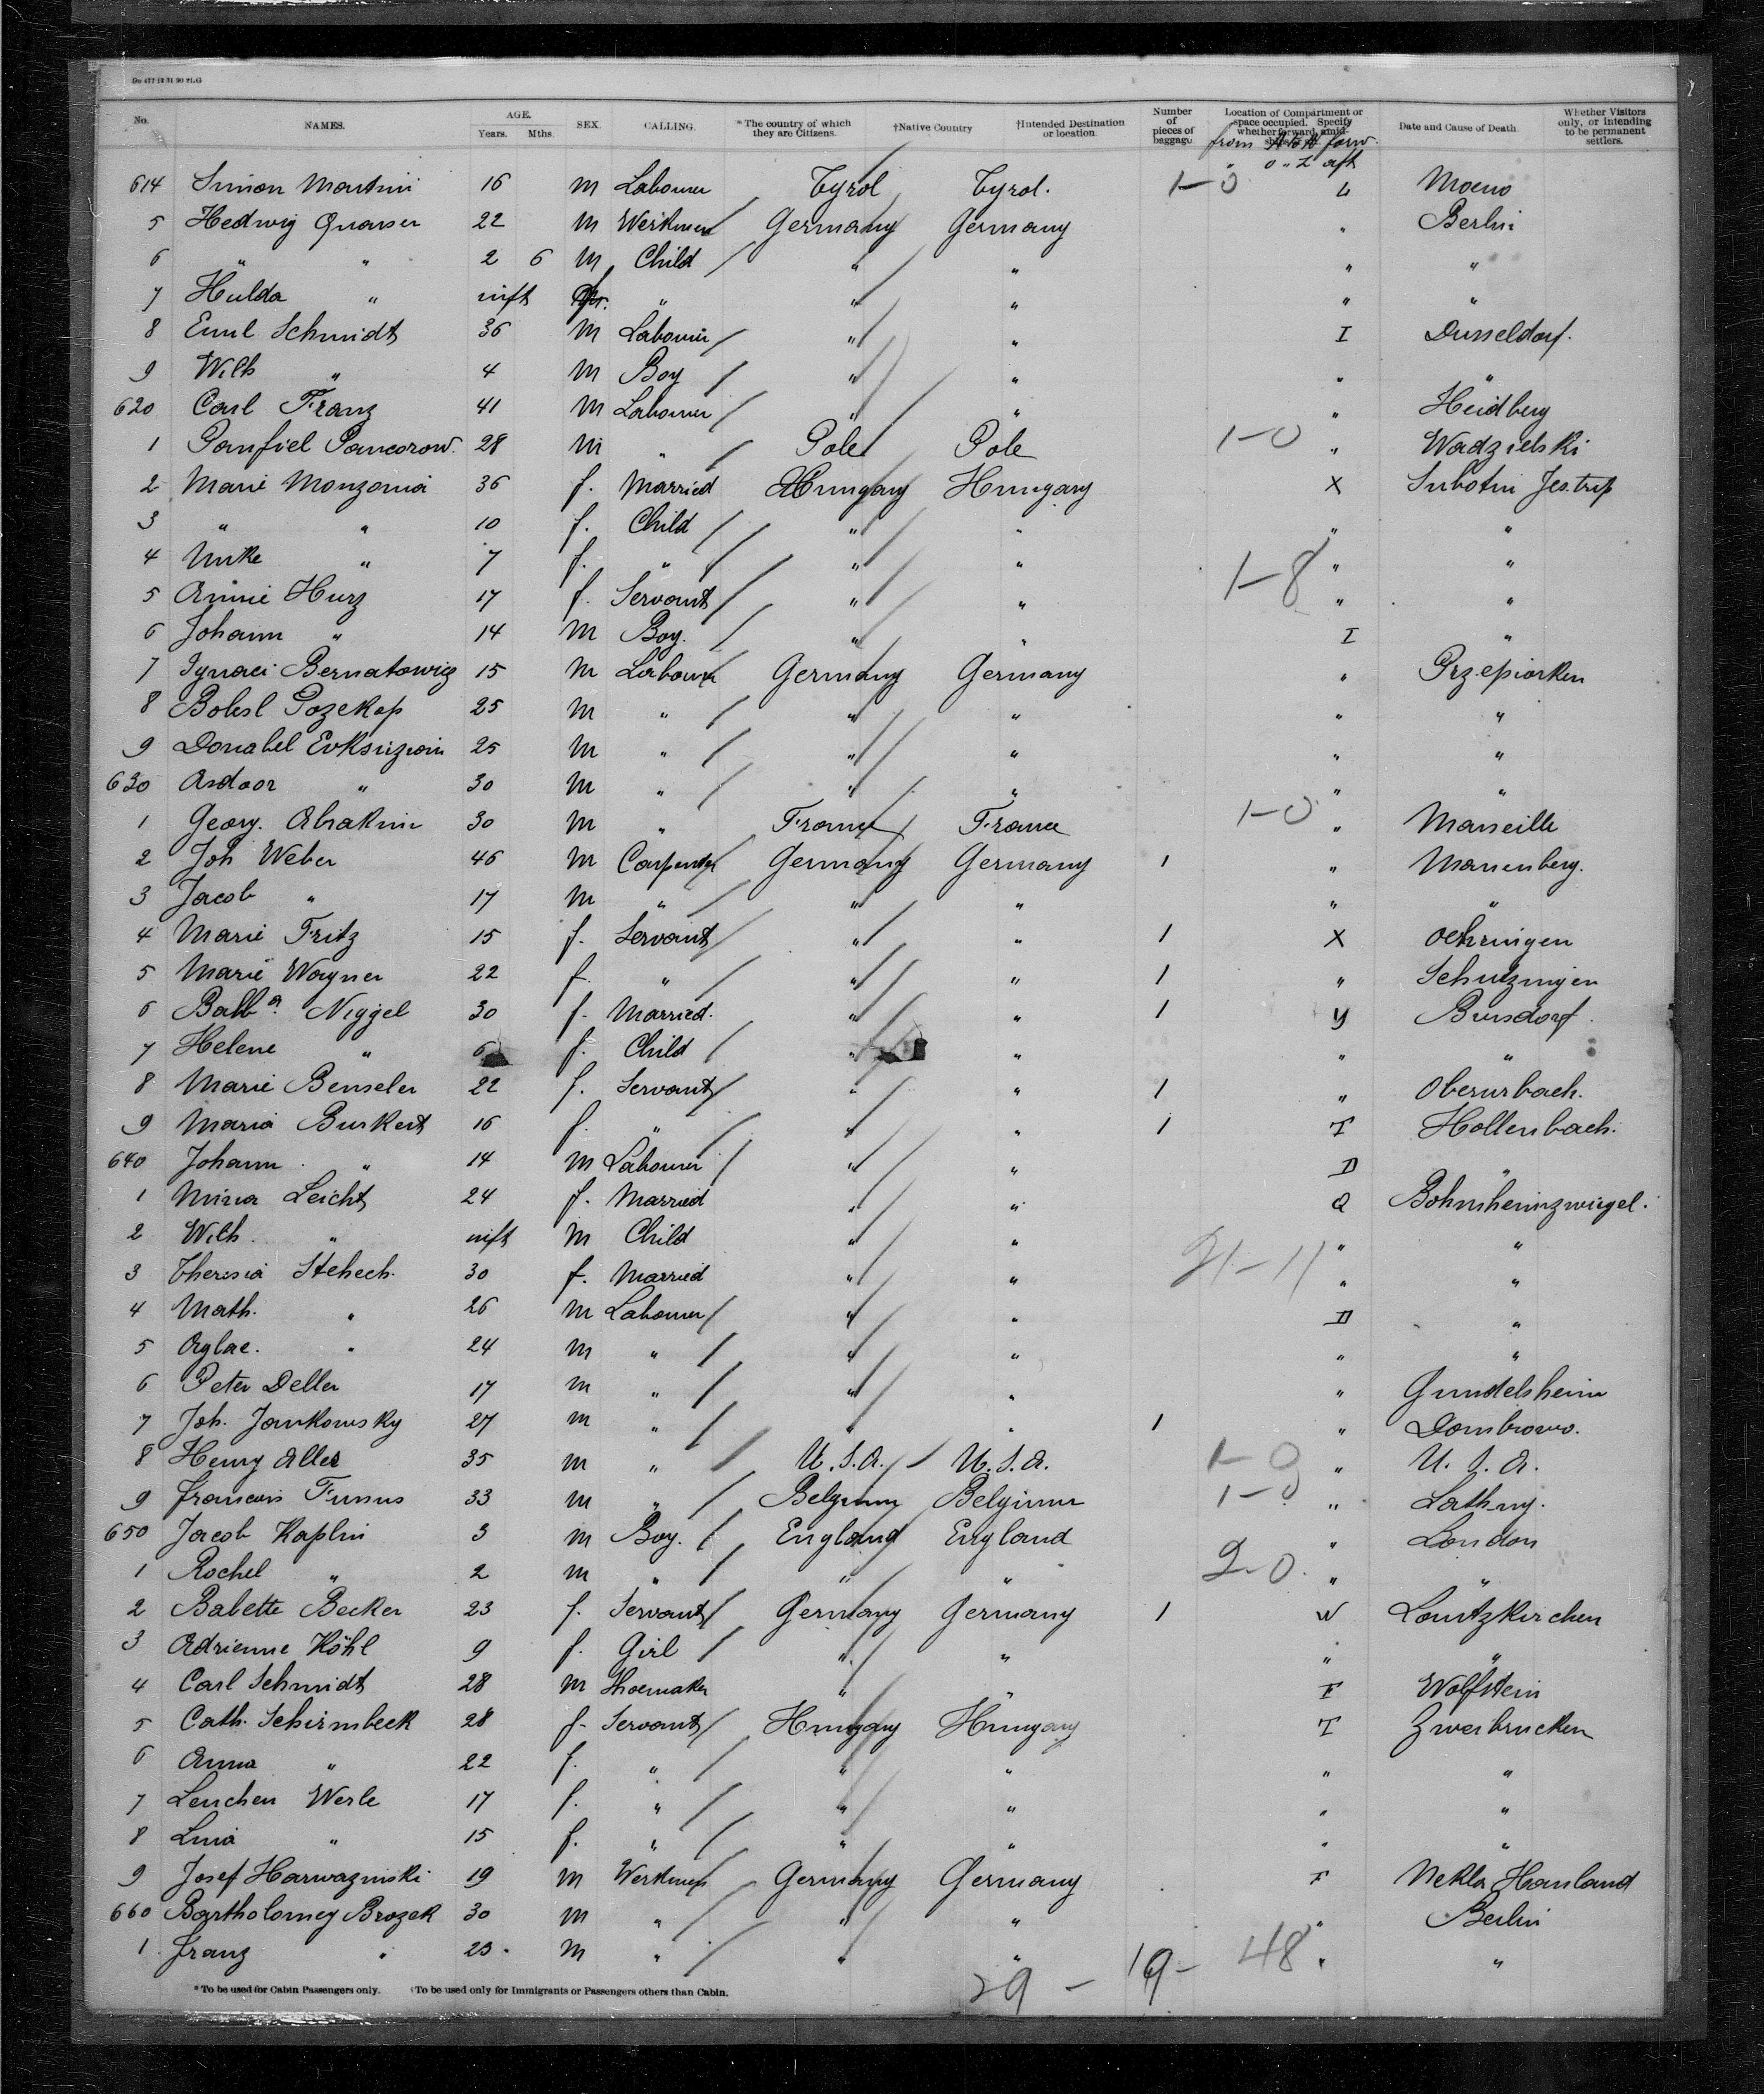 No. NAMES. AGE. Years. Mths. SEX. CALLING. *The country of which they are Citizens. †Native Country †Intended Destination or location. Number of pieces of baggage Location of Compartment or space occupied. Specify whether forward, amid- Date and Cause of Death. Whether Visitors only, or intending to be permanent settlers.
from A to N forw.
" O " Z aft
614 Simon Martini 16 m Labourer Tyrol Tyrol. 1-0 L Moeno
5 Hedwig Quaiser 22 m Werkmen Germany Germany " Berlin
6 " " 2 6 m Child " " " "
7 Hulda " inft " " " " "
8 Emil Schmidt 36 m Labourer " " I Dusseldorf.
9 Wilh " 4 m Boy " " " "
620 Carl Franz 41 m Labourer " " " Heidberg
1 Panfiel Pancorow. 28 m " Pole Pole 1-0 " Wadzielski
2 Marie Monzonia 36 f. Married Hungary Hungary X Subotin Jes.trip
3 " " 10 f. Child " " " "
4 Mike " 7 f. " " " " "
5 Annie Hurz 17 f. Servant " " 1-8 " "
6 Johann " 14 m Boy. " " I "
7 Ignaci Bernatowicz 15 m Labour Germany Germany " Przepiorken
8 Bolesl Pozekop 25 m " " " " "
9 Donabel Evksuzian 25 m " " " " "
630 Asdoor " 30 m " " " " "
1 Georg. Abrakim 30 m " France France 1-0 " Marseille
2 Joh Weber 46 m Carpenter Germany Germany 1 " Marienberg.
3 Jacob " 17 m " " " " "
4 Marie Fritz 15 f. Servant " " 1 X Oehringen
5 Marie Wagner 22 f " " " 1 " Schutzingen
6 Babba. Niggel 30 f. Married. " " 1 Y Bursdorf.
7 Helene " 6 f. Child " " " "
8 Marie Benseler 22 f. Servant " " 1 " Oberurbach.
9 Maria Burkert 16 f. " " " 1 T Hollenbach.
640 Johann " 14 m Labourer " " D "
1 Mina Leicht 24 f. Married " " Q Bohmheimzwiegel.
2 Wilh. " inft m Child " " " "
3 Theresia Stehech. 30 f. Married " " 21-11 " "
4 Math. " 26 m Labourer " " D "
5 Aglae. " 24 m " " " " "
6 Peter Deller 17 m " " " " Gundelsheim
7 Joh. Jankowsky 27 m " " " 1 " Dombrowo.
8 Henry Alles 35 m " U.S.A. U.S.A. 1-0 " U.S.A.
9 Francois Funus 33 m " Belgium Belgium 1-0 " Lathuy.
650 Jacob Kaplin 3 m Boy. England England " London
1 Rochel " 2 m " " " 2-0. " "
2 Babette Becker 23 f. Servant Germany Germany 1 W Lontzkirchen
3 Adrienne Köhl 9 f. Girl " " " "
4 Carl Schmidt 28 m Shoemaker " " F Wolfstein
5 Cath. Schirmbeck 28 f. Servant Hungary Hungary T Zweibrucken
6 Anna " 22 f. " " " " "
7 Lenchen Werle 17 f. " " " " "
8 Lina " 15 f. " " " " "
9 Josef Harwazinski 19 m Werkmen Germany Germany F Nekla Hauland
660 Bartholomey Brozek 30 m " " " " Berlin
1. Franz " 23. m " " " " "
29 - 19 - 48
*To be used for Cabin Passengers only. †To be used only for Immigrants or Passengers others than Cabin.